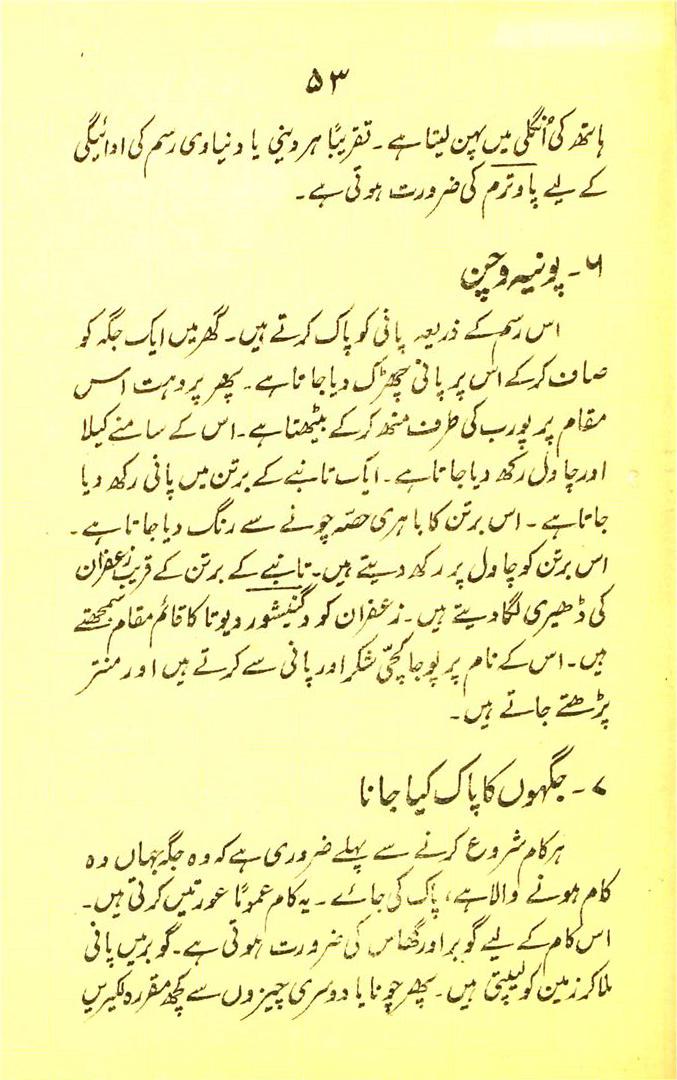 ۵۳
ہاتھ کی اُنگلی میں پہن لیتا ہے۔ تقریباً ہر دینی یا دنیاوی رسم کی ادائیگی
کے لیے پاوترم کی ضرورت ہوتی ہے۔
۶۔ پونیہ وچن
اس رسم کے ذریعہ پانی کو پاک کرتے ہیں۔ گھر میں ایک جگہ کو
صاف کر کے اس پر پانی چھڑک دیا جاتا ہے۔ پھر پروہت اس
مقام پر پورب کی طرف منھ کر کے بیٹھتا ہے۔ اس کے سامنے کیلا
اور چاول رکھ دیا جاتا ہے۔ ایک تانبے کے برتن میں پانی رکھ دیا
جاتا ہے۔ اس برتن کا باہری حصّہ چونے سے رنگ دیا جاتا ہے۔
اس برتن کو چاول پر رکھ دیتے ہیں۔ تانبے کے برتن کے قریب زعفران
کی ڈھیری لگا دیتے ہیں۔ زعفران کو وگنیشور دیوتا کا قائم مقام سمجھتے
ہیں۔ اس کے نام پر پوجا کچّی شکر اور پانی سے کرتے ہیں اور منتر
پڑھتے جاتے ہیں۔
۷۔ جگہوں کا پاک کیا جانا
ہر کام شروع کرنے سے پہلے ضروری ہے کہ وہ جگہ جہاں وہ
کام ہونے والا ہے، پاک کی جائے۔ یہ کام عموماً عورتیں کرتی ہیں۔
اس کام کے لیے گوبر اور گھاس کی ضرورت ہوتی ہے۔ گوبر میں پانی
ملا کر زمین کو لیپتی ہیں۔ پھر چونا یا دوسری چیزوں سے کچھ مقررہ لکیریں